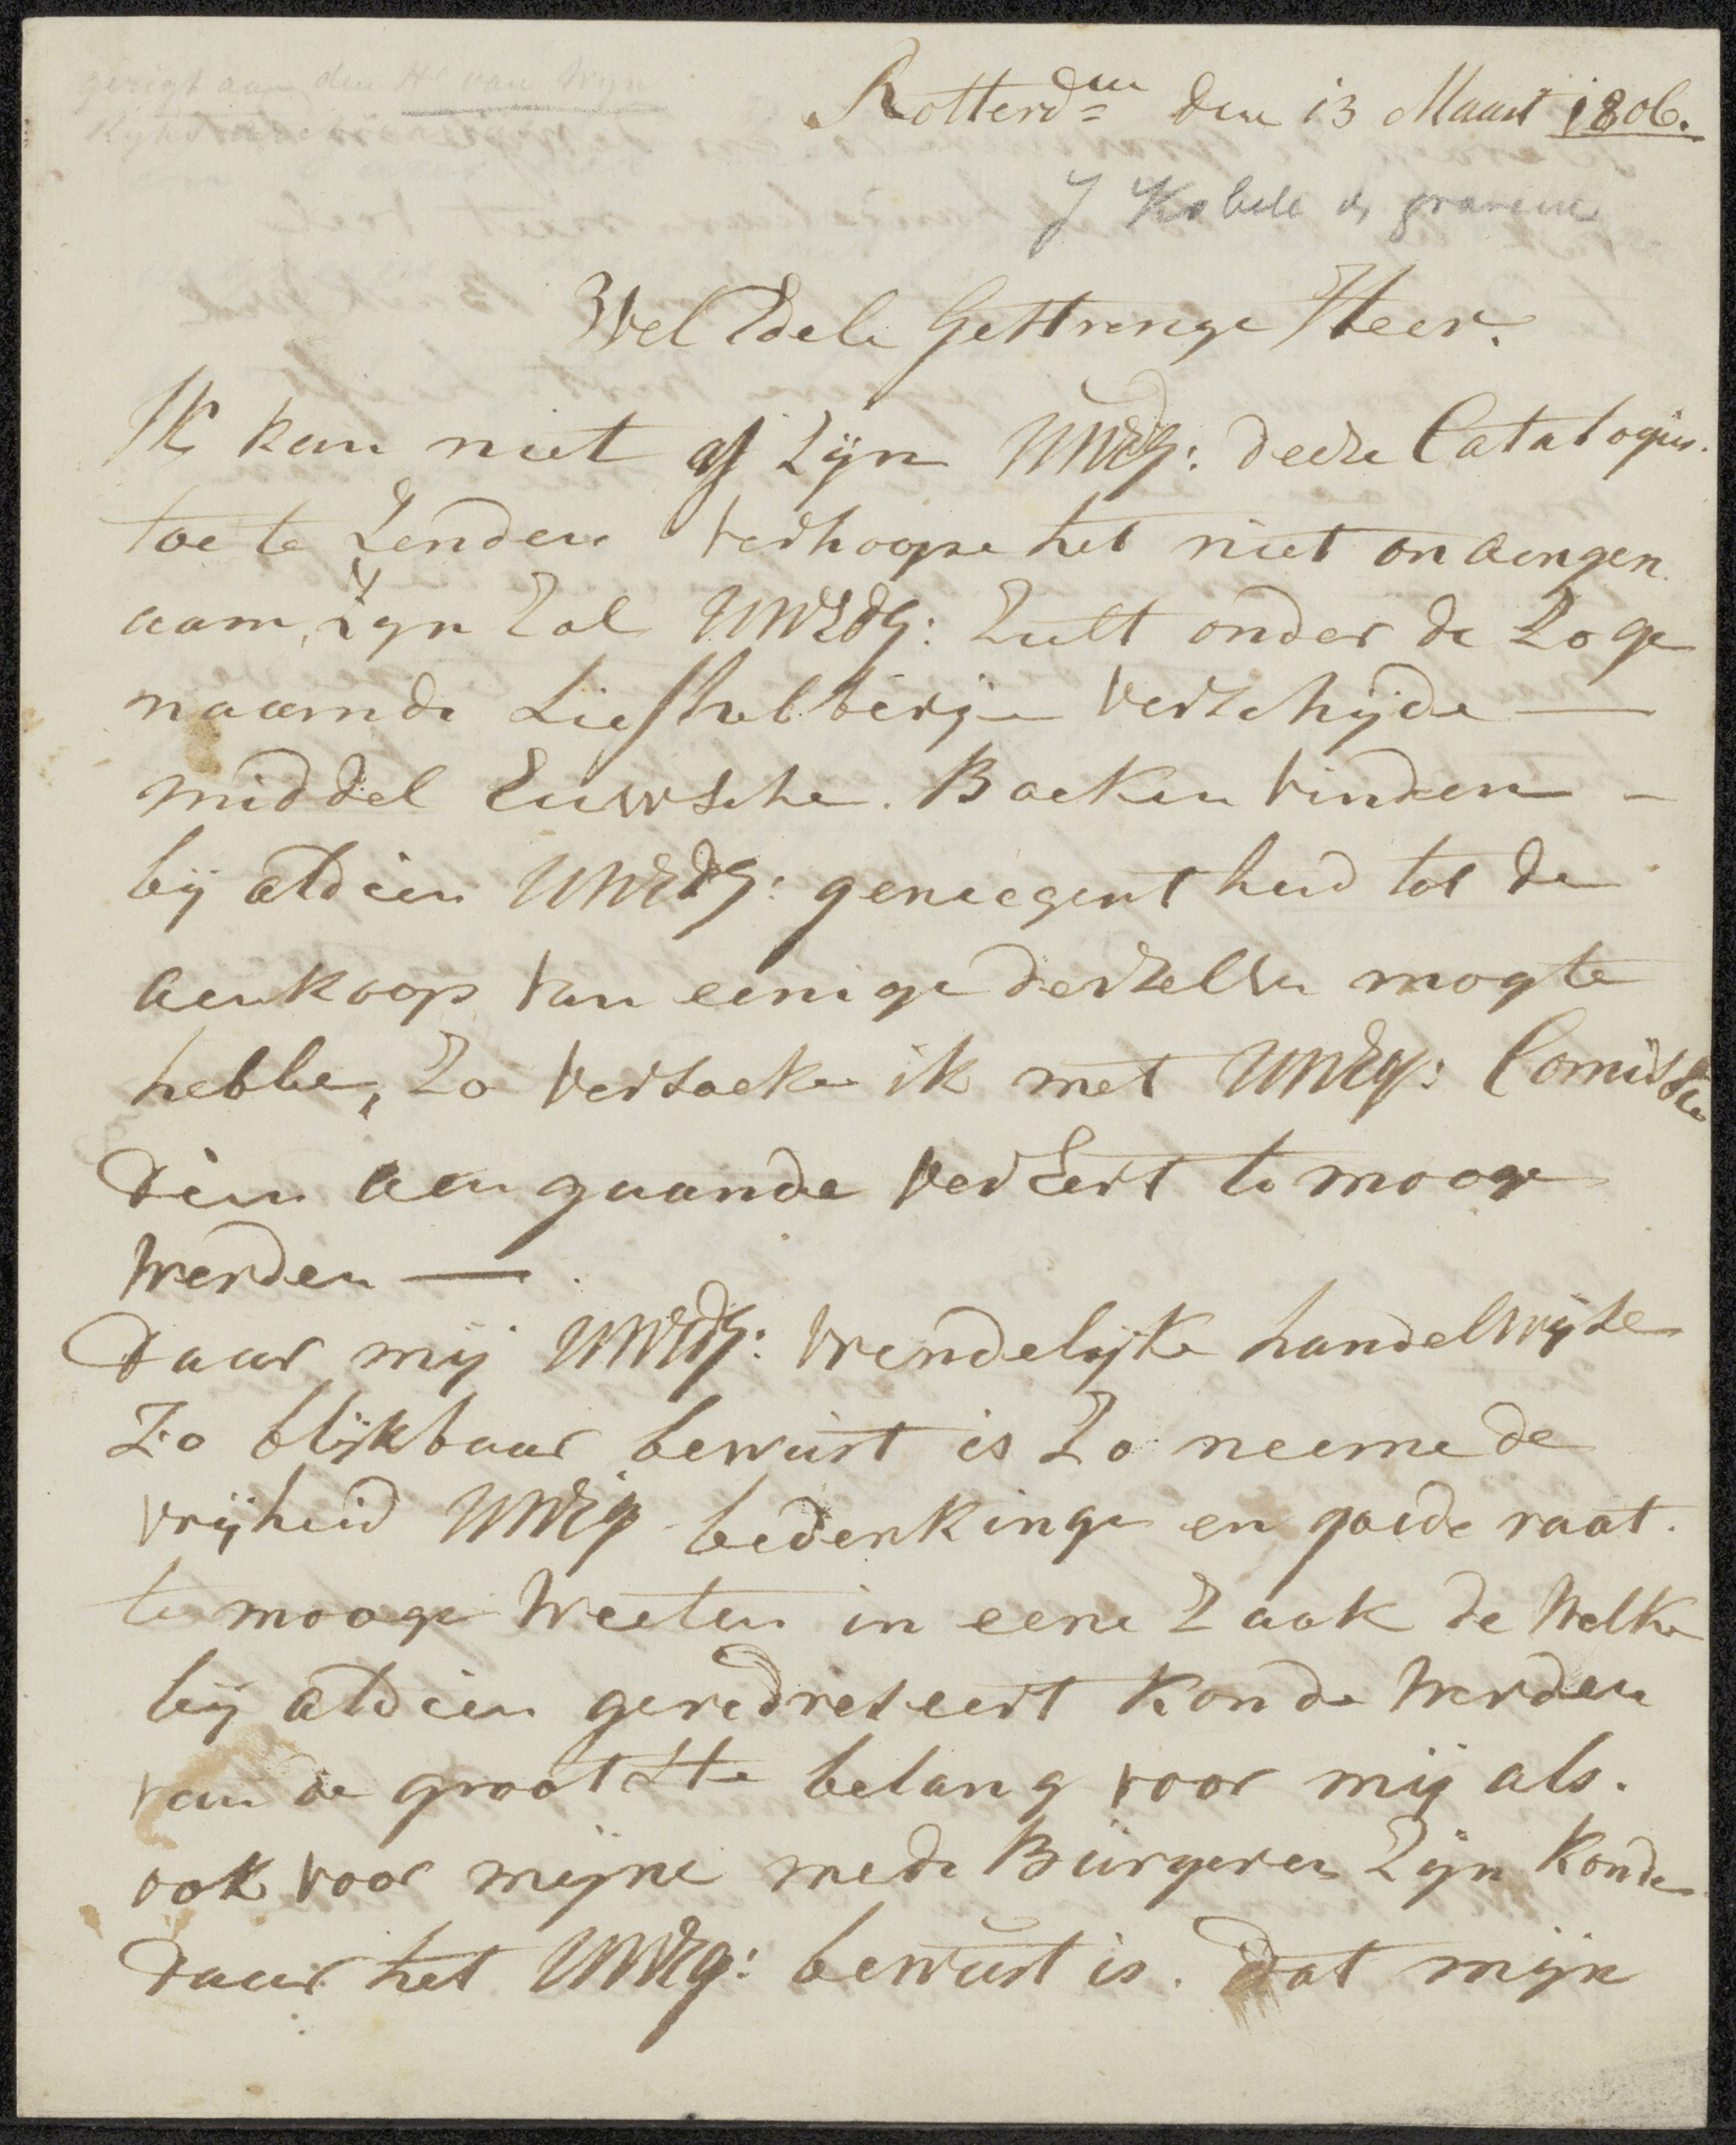 gerigt aan den Hr van Wyn
Rotterdm den 13 Maart 1806.
J Kobell de graveur
Wel Edele Gestrenge Heer.
Ik kan niet af zijn UWEdG: deeze Catalogus.
toe te zenden verhoope het niet onaengen
aam, zyn zal UWEdG: zult onder de zoge
naamde Liefhebberije verschijde —
middel Euwsche. Boeken vinden -
bij aldien UWEdG: geneegentheid tot de
aenkoop van eenige derzelve mogte
hebbe, zo versoeke ik met UWEG: Comissie
dien aengaande verEert te mooge
werden — .
Daar mij UWEdG: vrendelijke handelwijze
zo blijkbaar bewust is zo neeme de
vrijheid UWEG bedenkinge en goede raat.
te mooge weeten in eene zaak de welke
bij aldien geredreseert konde werden
van de grootste belang voor mij als.
ook voor mijne mede Burgeren zijn konde
Daar het UWEG: bewust is. Dat mijn